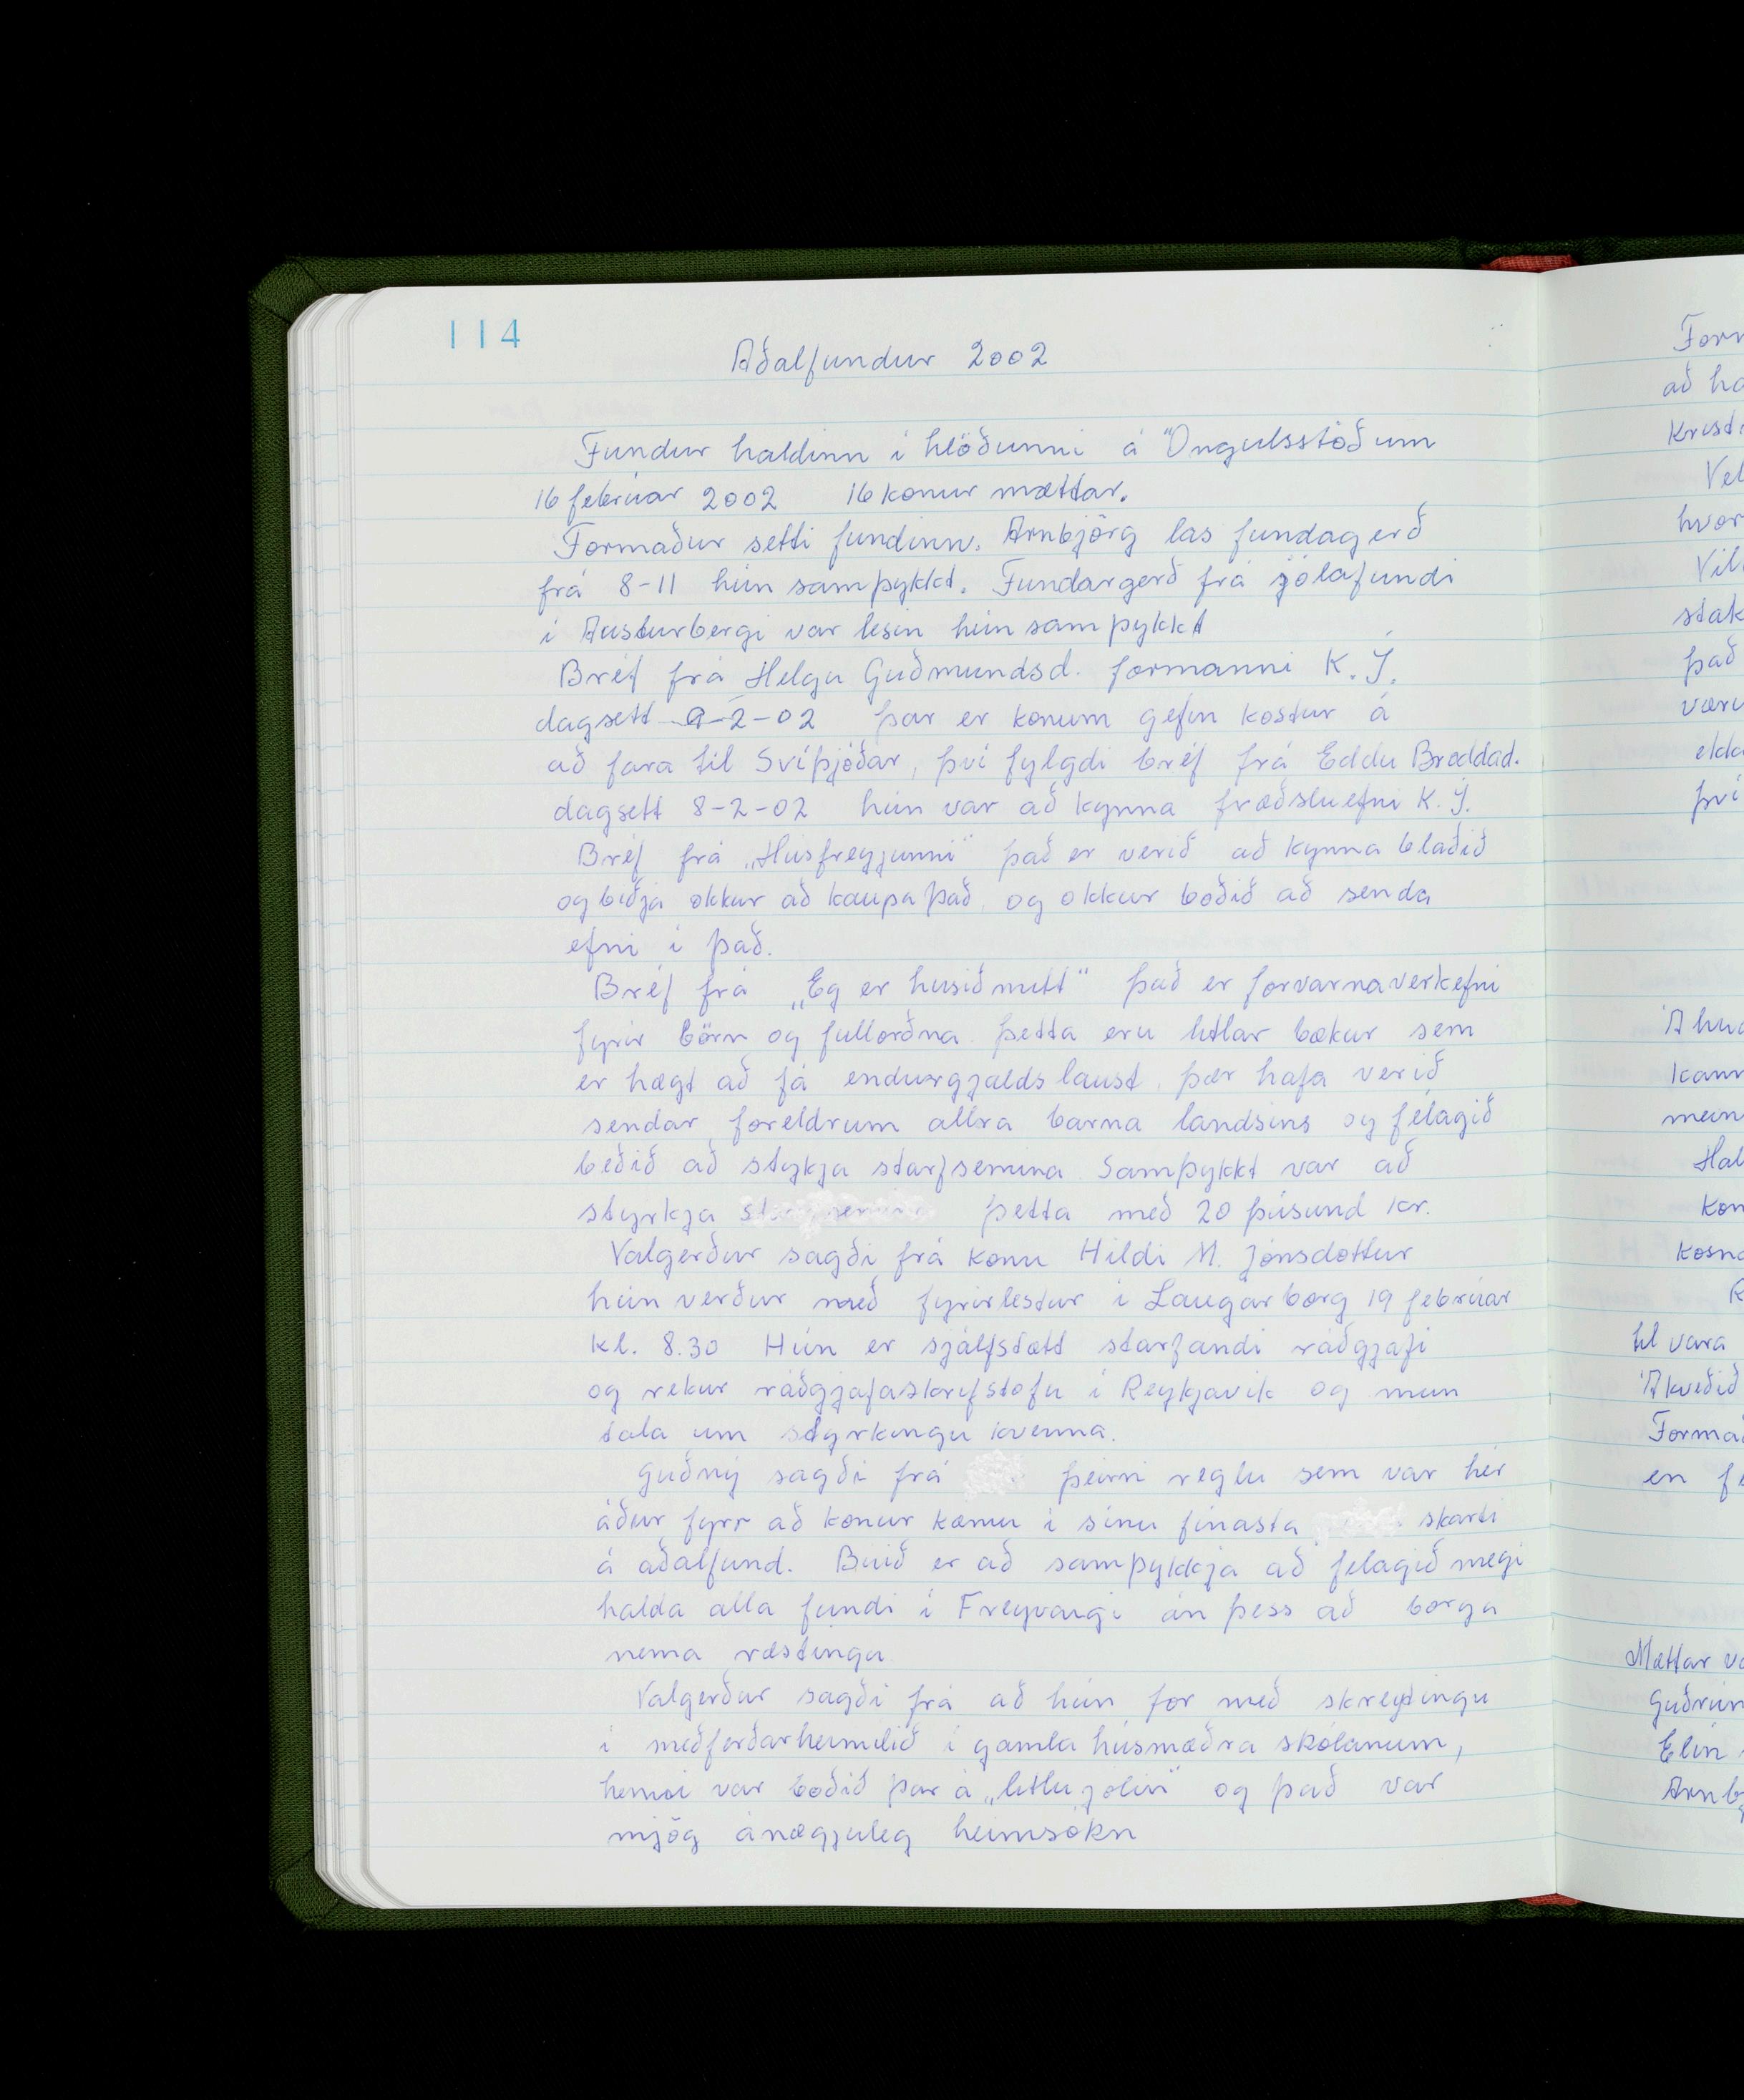 114
Aðalfundur 2002
Fundur haldinn í hlöðunni á Öngulsstöðum
16 febrúar 2002 16 konur mættar.
Formaður setti fundinn. Arnbjörg las fundagerð
frá 8-11 hún samþykkt. Fundargerð frá jólafundi
í Austurbergi var lesin hún samþykkt
Bréf frá Helgu Guðmundsd. formanni K.Í.
dagsett 9-2-02 þar er konum gefin kostur á
að fara til Svíþjóðar, því fylgdi bréf frá Eddu Broddad.
dagsett 8-2-02 hún var að kynna fræðsluefni K.Í.
Bréf frá „Húsfreyjunni" það er verið að kynna blaðið
og biðja okkur að kaupa það og okkur boðið að senda
efni í það.
Bréf frá „Eg er húsið mitt" það er forvarnaverkefni
fyrir börn og fullorðna. Þetta eru litlar bækur sem
er hægt að fá endurgjaldslaust, þær hafa verið
sendar foreldrum allra barna landsins og félagið
beðið að stykja starfsemina. Samþykkt var að
styrkja þetta með 20 þúsund kr.
Valgerður sagði frá konu Hildi M. Jónsdóttur
hún verður með fyrirlestur í Laugarborg 19 febrúar
kl. 8.30 Hún er sjálfstætt starfandi ráðgjafi
og rekur ráðgjafaskrifstofu í Reykjavík og mun
tala um styrkingu kvenna.
Guðný sagði frá þeirri reglu sem var hér
áður fyrr að konur kæmu í sínu fínasta skarti
á aðalfund. Búið er að samþykkja að félagið megi
halda alla fundi í Freyvangi án þess að borga
nema ræstingu
Valgerður sagði frá að hún fór með skreytingu
í meðferðarheimilið í gamla húsmæðra skólanum,
henni var boðið þar á „litlu jólin" og það var
mjög ánægjuleg heimsókn
að
hvor
það
því
til vara
Ákveðið
en
Mættar
Guðrún
Elín